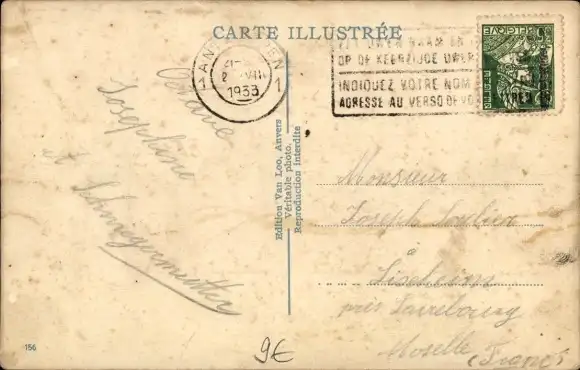 CARTE ILLUSTRÉE
ANTWERPEN
1 1
1933
OP DE KEERZIJDE UWER
INDIQUEZ VOTRE NOM
ADRESSE AU VERSO DE VOS
BELGIQUE
Edition Van Loo, Anvers
Véritable photo.
Reproduction interdite
Josephine
et Schwigermutter
Monsieur
Joseph
à
Lixheim
près Sarrebourg
Moselle (France)
9€
156